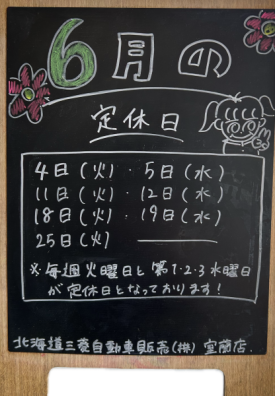 6月の
定休日
4日(火)・5日(水)
11日(火)・12日(水)
18日(火)・19日(水)
25日(火)
※毎週火曜日と第1・2・3水曜日
が定休日となっております!
北海道三菱自動車販売(株)室蘭店